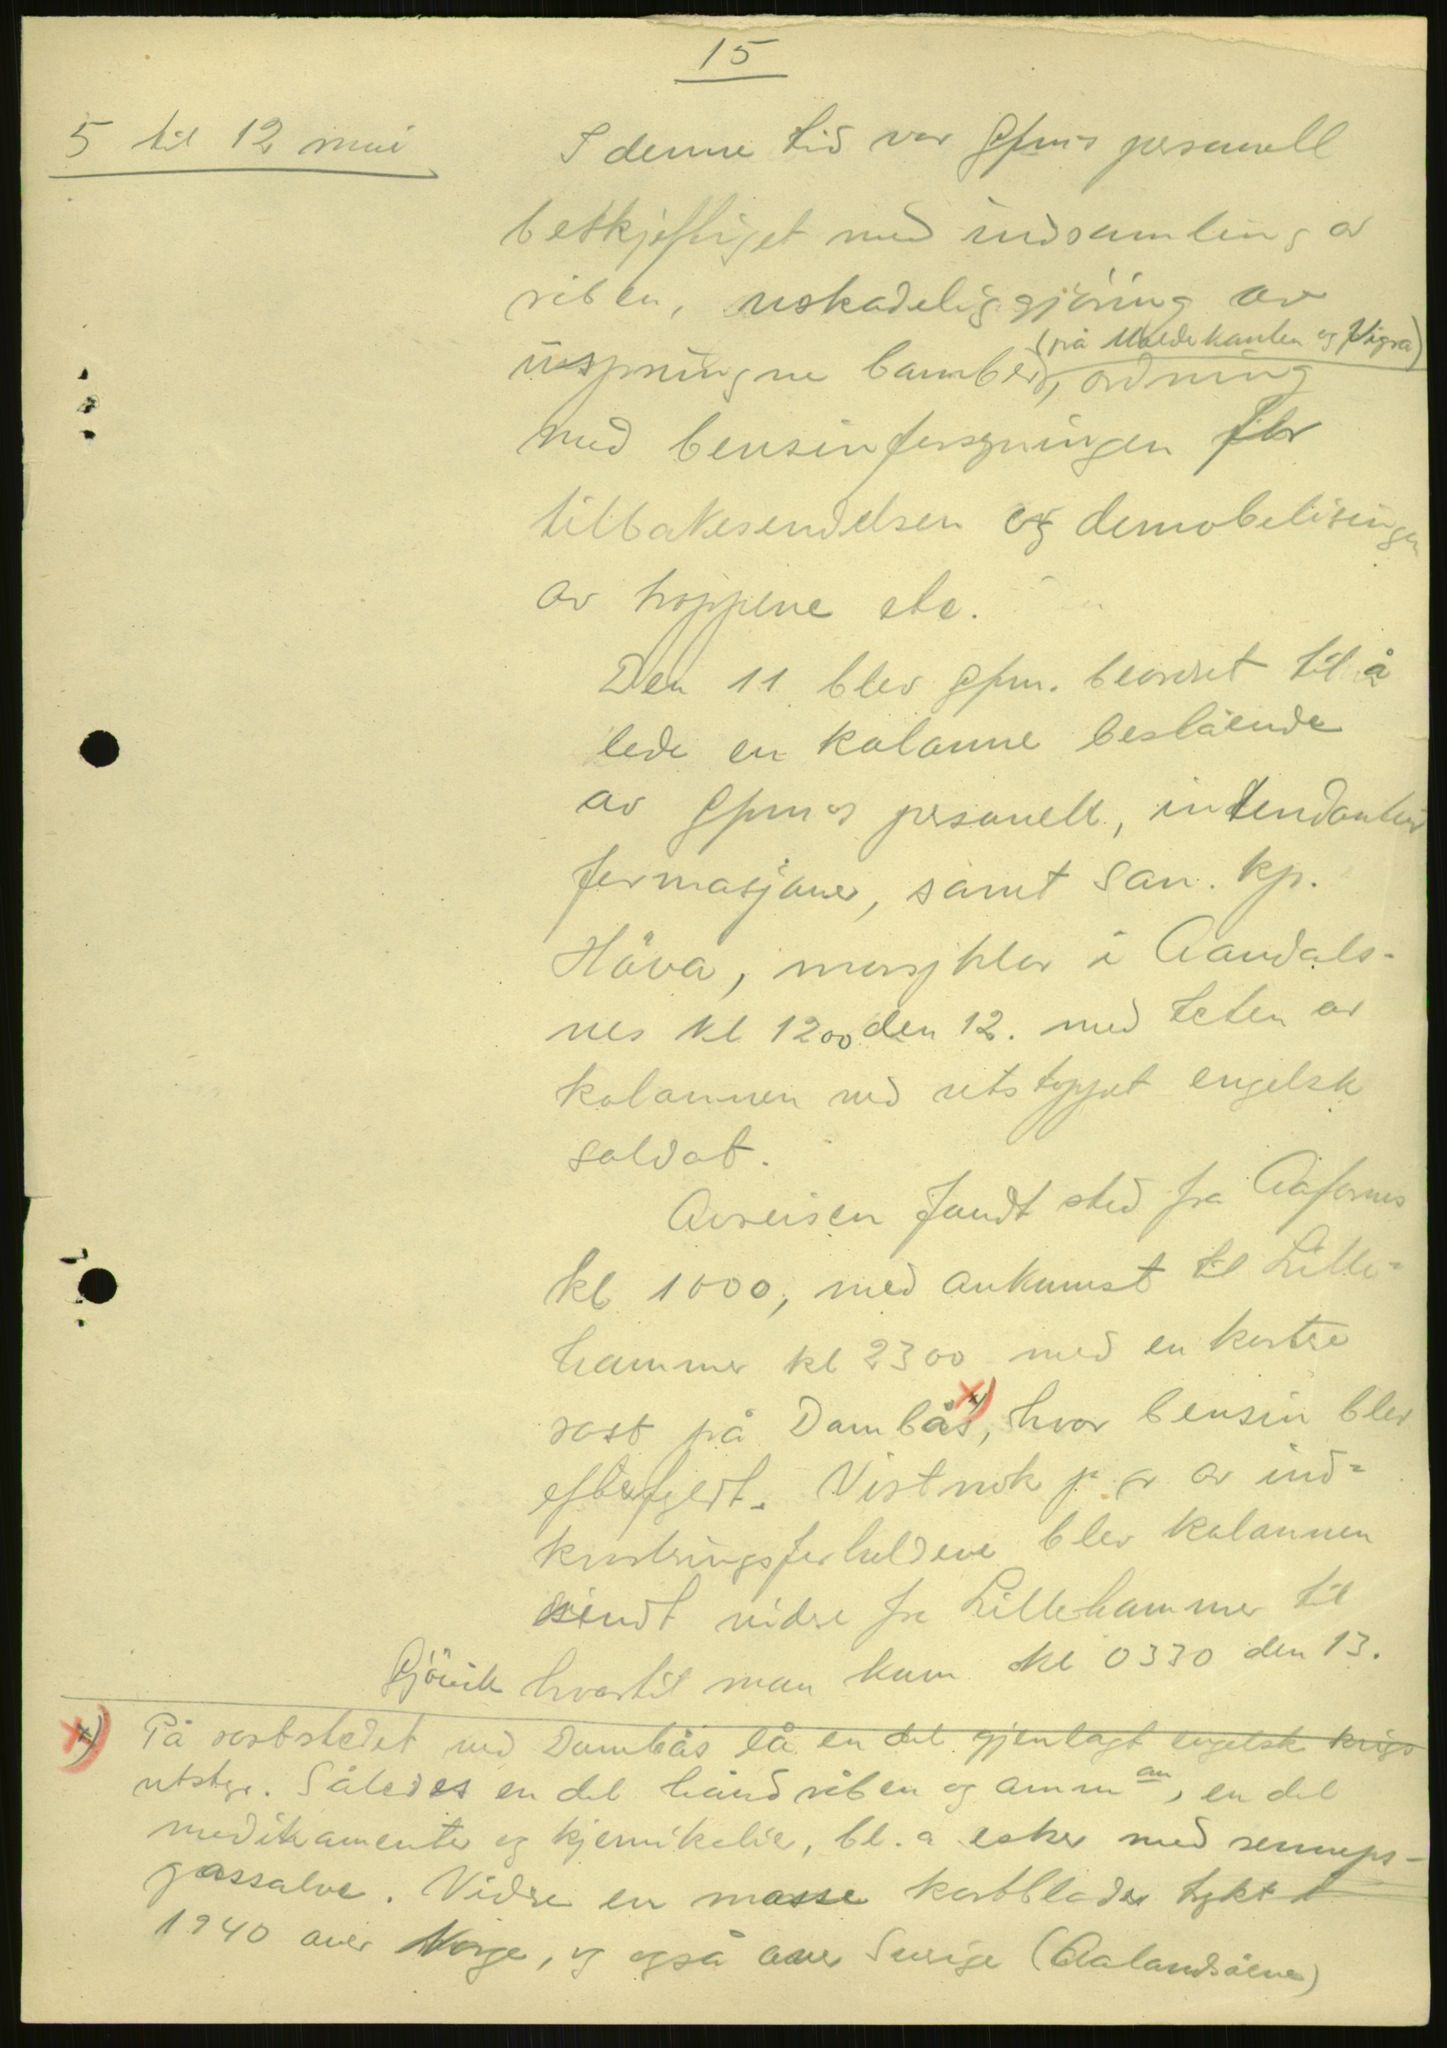 15
5 til 12 mai
I denne tid var Gfm's personell
beskjeftiget med indsamling av
våben, uskadeliggjöring av
(på Moldekanten og Vigra)
usprungne bomber, ordning
med bensinforsyningen for
tilbakesendelsen og demobiliseringen
av troppene etc.
Den 11 blev Gfm. beordret til å
lede en kolonne bestående
av Gfm's personell, intendantur
formasjoner, samt San. kp.
Höva, marsjklar i Aandals-
nes kl 1200 den 12. med teten av
kolonnen ved utstoppet engelsk
soldat.
Avreisen fandt sted fra Aafarnes
kl 1000, med ankomst til Lille-
hammer kl 2300 med en kortere
rast på Dombås x), hvor bensin blev
efterfyldt. Vistnok p. gr av ind-
kvartringsforholdene blev kolonnen
sendt vidre fra Lillehammer til
Gjövik hvortil man kom kl 0330 den 13.
x) På raststedet ved Dombås lå en del gjenlagt engelsk krigs
utstyr. Således en del håndvåben og amm an, en del
medikamenter og kjemikalier, bl. a esker med senneps-
gassalve. Vidre en masse kartblader trykt i
1940 over Norge, og også over Sverige (Aalandsöene)